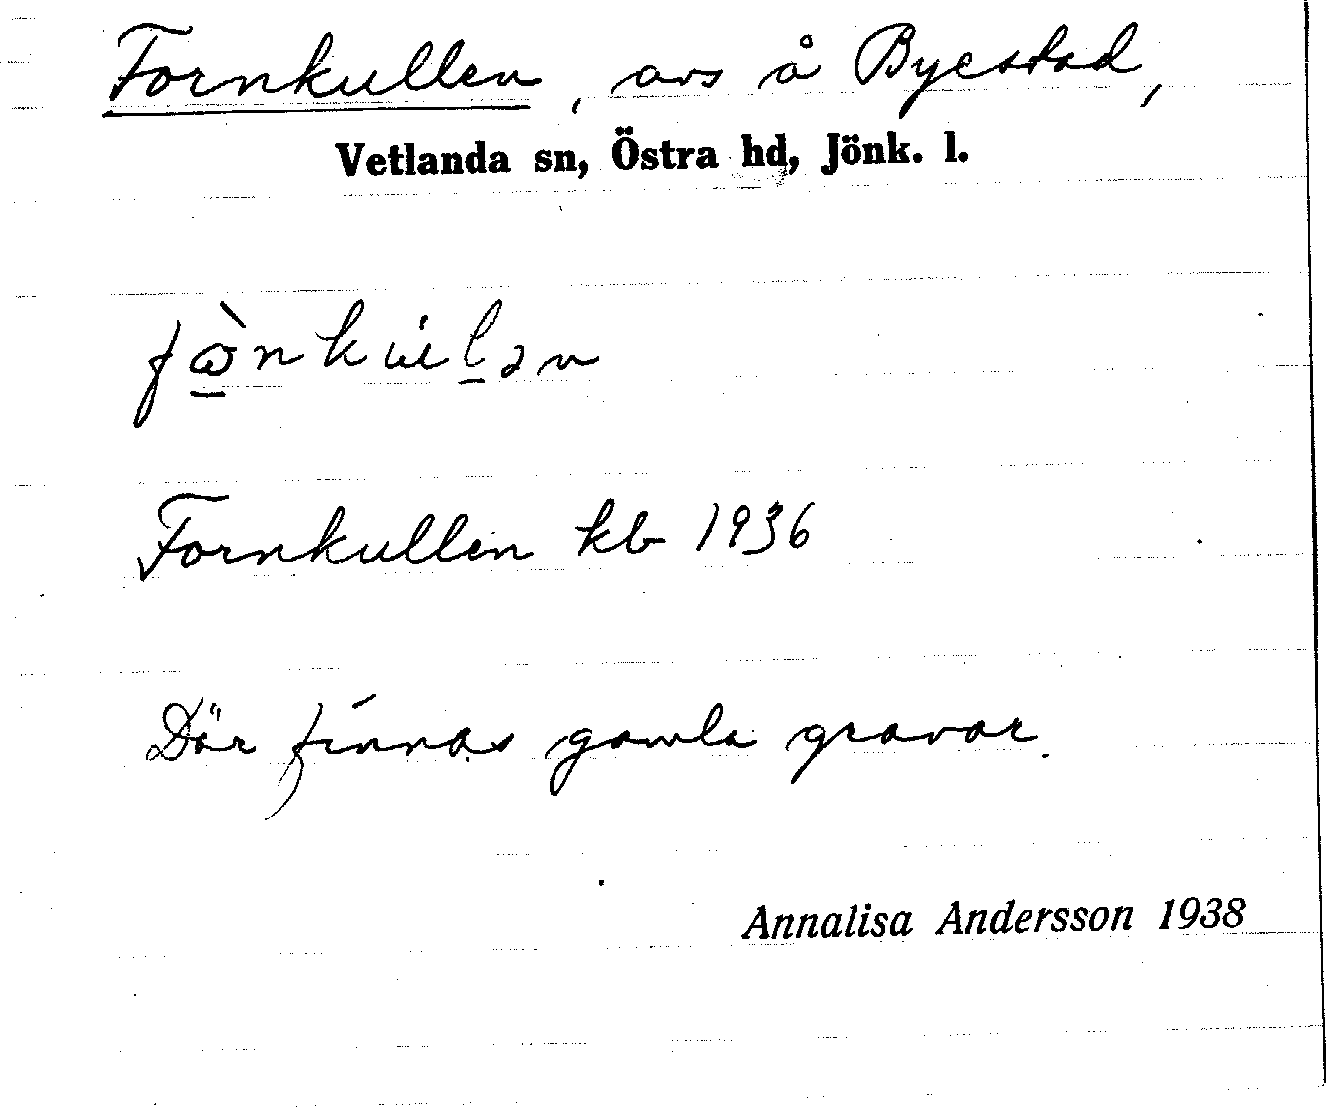 Fornkullen, avs å Byestad,
Vetlanda sn, Östra hd, Jönk. l.
Fornkullen kb 1936
Där finnas gamla gravar.
Annalisa Andersson 1938